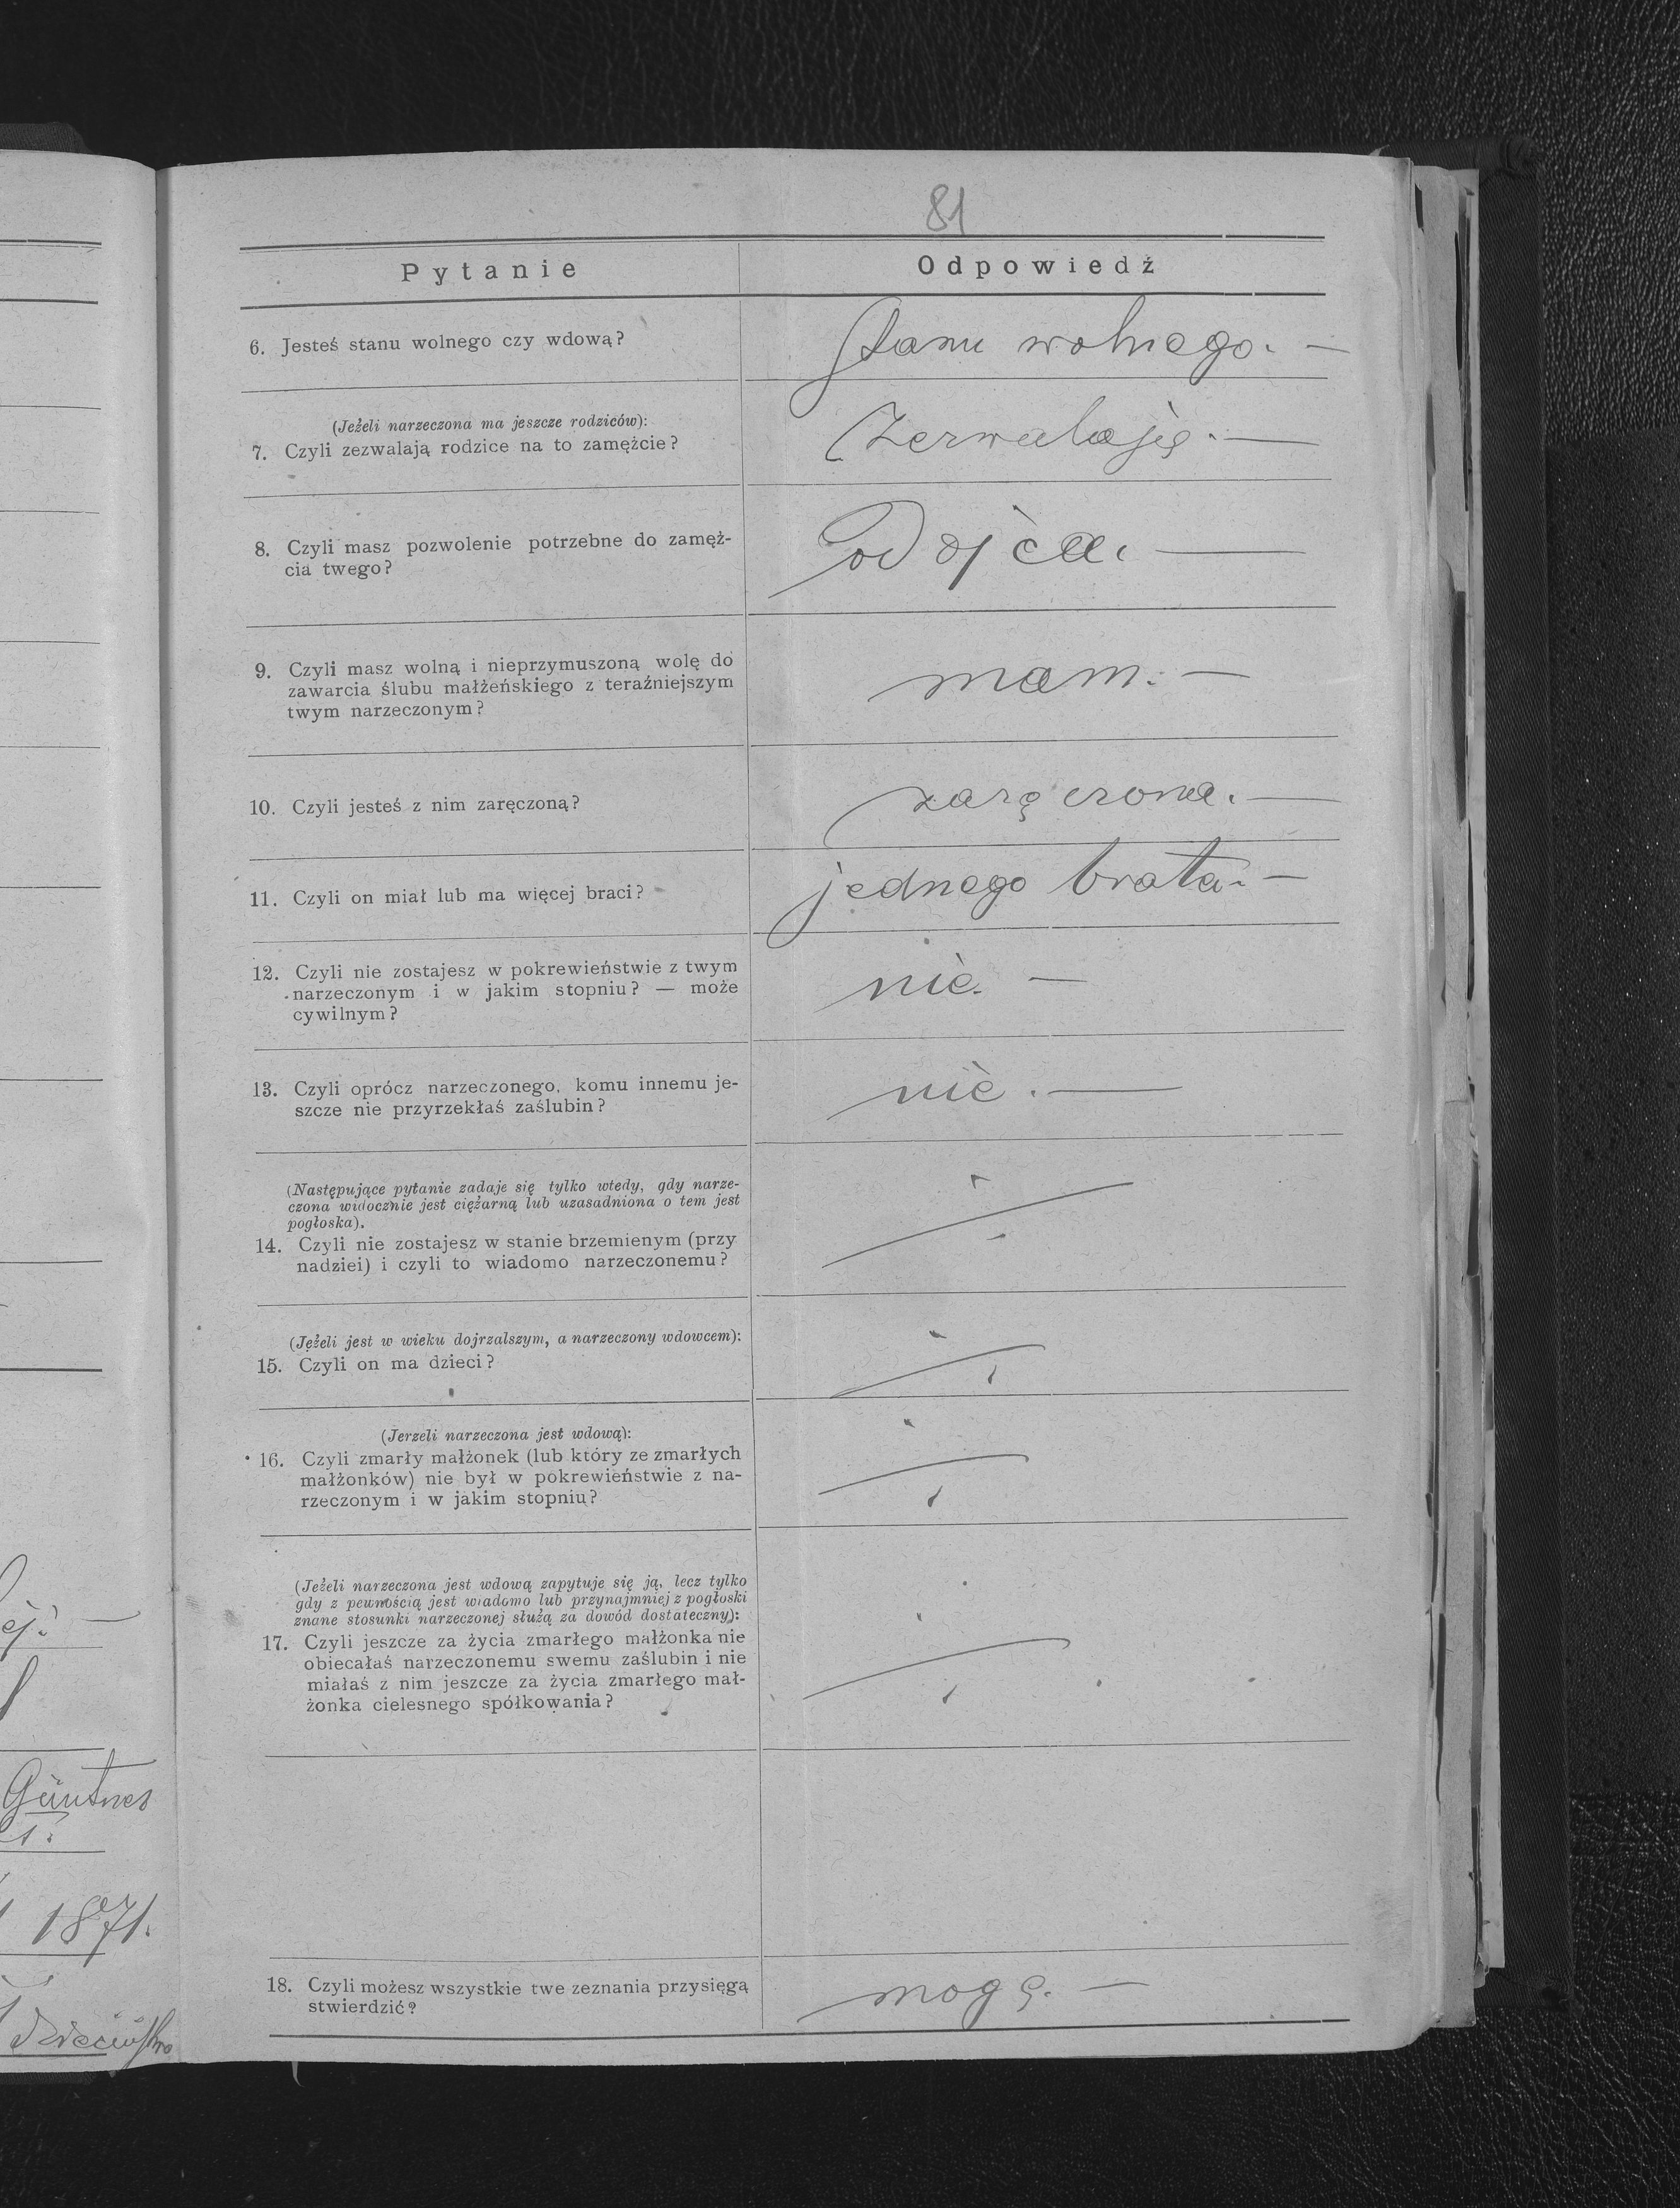 81
Pytanie Odpowiedź
6. Jesteś stanu wolnego czy wdową? Stanu wolnego. —
(Jeżeli narzeczona ma jeszcze rodziców):
7. Czyli zezwalają rodzice na to zamęźcie? Zezwalają. —
8. Czyli masz pozwolenie potrzebne do zamęż-
cia twego? od ojca. —
9. Czyli masz wolną i nieprzymuszoną wolę do
zawarcia ślubu małżeńskiego z teraźniejszym
twym narzeczonym? mam. —
10. Czyli jesteś z nim zaręczoną? zaręczona. —
11. Czyli on miał lub ma więcej braci? jednego brata. —
12. Czyli nie zostajesz w pokrewieństwie z twym
narzeczonym i w jakim stopniu? — może
cywilnym? nie. —
13. Czyli oprócz narzeczonego, komu innemu je-
szcze nie przyrzekłaś zaślubin? nie. —
(Następujące pytanie zadaje się tylko wtedy, gdy narze-
czona widocznie jest ciężarną lub uzasadniona o tem jest
pogłoska).
14. Czyli nie zostajesz w stanie brzemienym (przy
nadziei) i czyli to wiadomo narzeczonemu?
(Jeżeli jest w wieku dojrzalszym, a narzeczony wdowcem):
15. Czyli on ma dzieci?
(Jerzeli narzeczona jest wdową):
16. Czyli zmarły małżonek (lub który ze zmarłych
małżonków) nie był w pokrewieństwie z na-
rzeczonym i w jakim stopniu?
(Jeżeli narzeczona jest wdową zapytuje się ją, lecz tylko
gdy z pewnością jest wiadomo lub przynajmniej z pogłoski
znane stosunki narzeczonej służą za dowód dostateczny):
17. Czyli jeszcze za życia zmarłego małżonka nie
obiecałaś narzeczonemu swemu zaślubin i nie
miałaś z nim jeszcze za życia zmarłego mał-
żonka cielesnego spółkowania?
18. Czyli możesz wszystkie twe zeznania przysięgą
stwierdzić? mogę. —
1871.